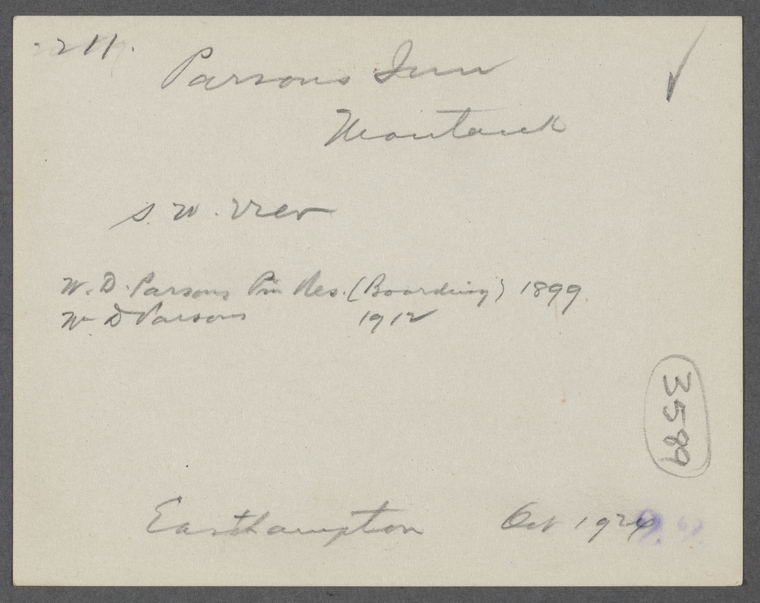 211.
Parsons Inn
Montauk
S. W. View
W. D. Parsons Pri Res. (Boarding) 1899.
W D Parsons 1912
3589
Easthampton Oct 1924